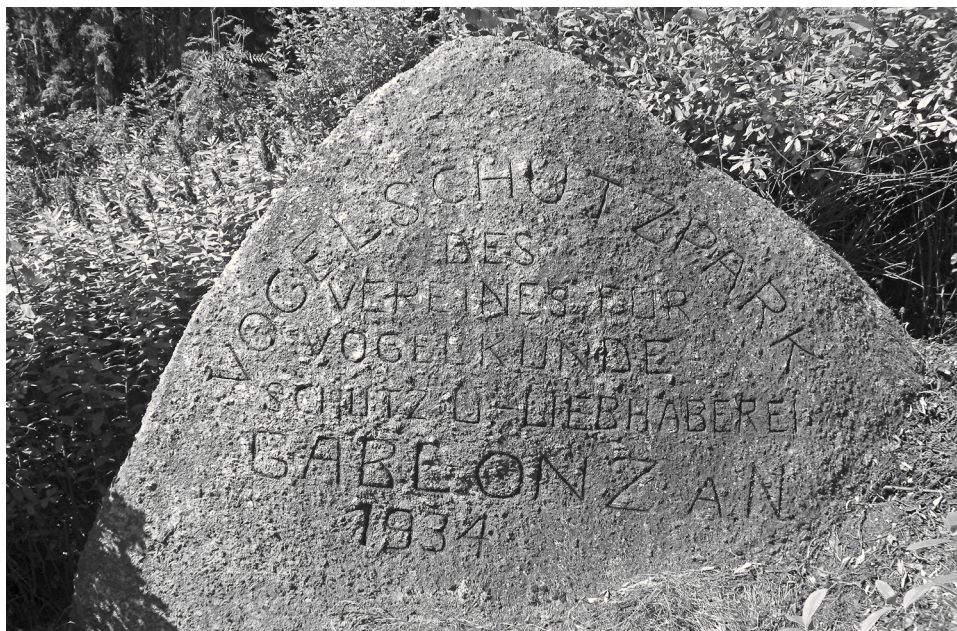 VOGELSCHUTZPARK
DES
VEREINES FÜR
VOGELKUNDE
SCHUTZ U-LIEBHABEREI
GABLONZ AN
1934